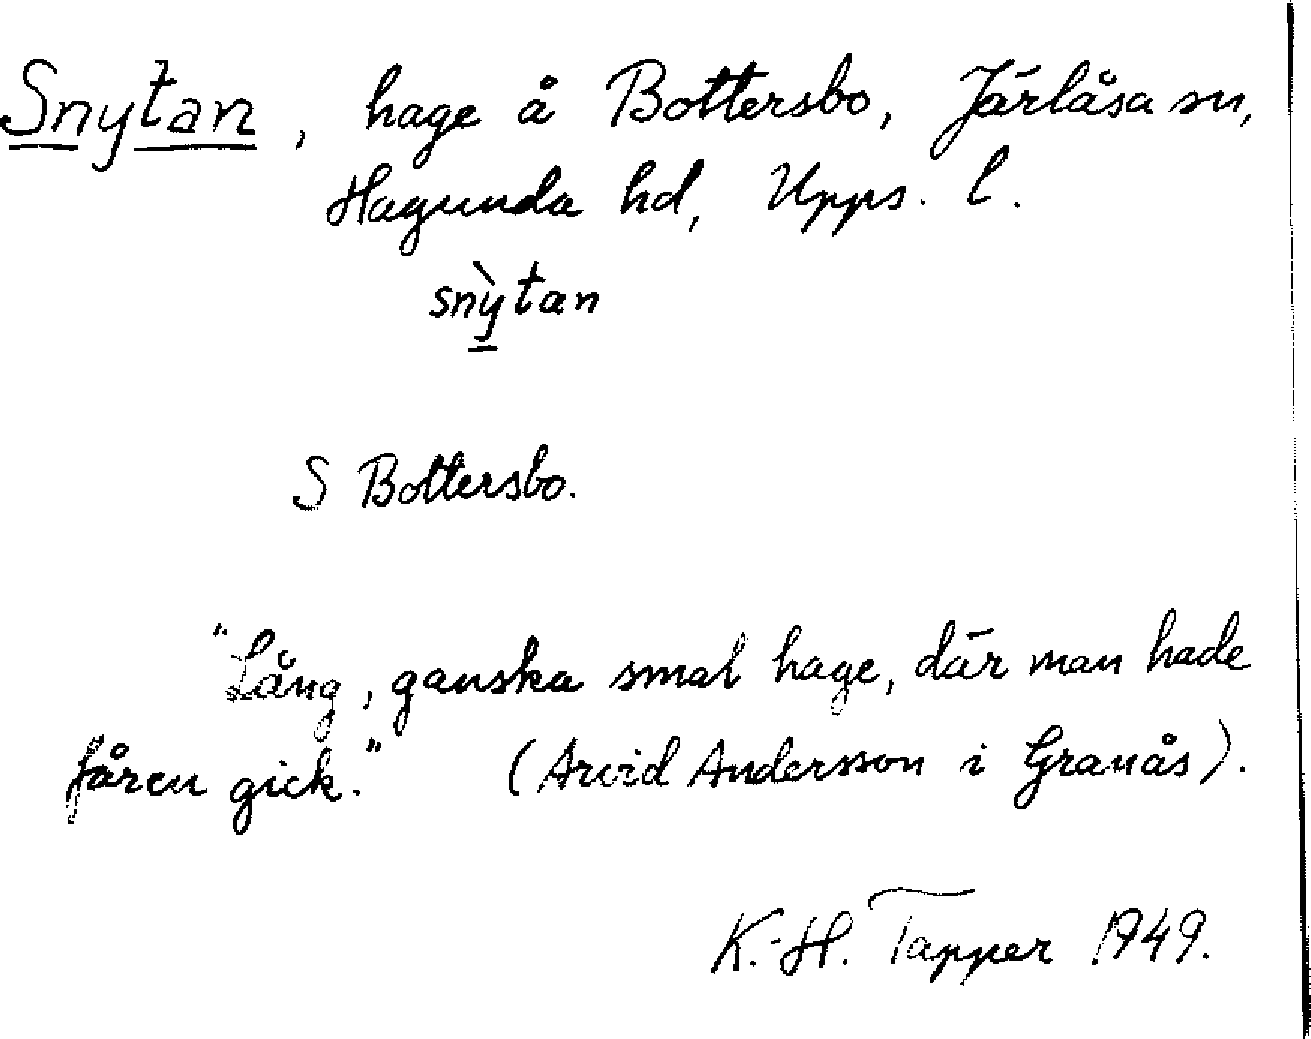 Snytan, hage å Bottersbo, Järlåsa sn,
Hagunda hd, Upps. l.
snỳtan
S Bottersbo.
"Lång, ganska smal hage, där man hade
fåren gick." (Arvid Andersson i Granås).
K.-H. Tapper 1949.